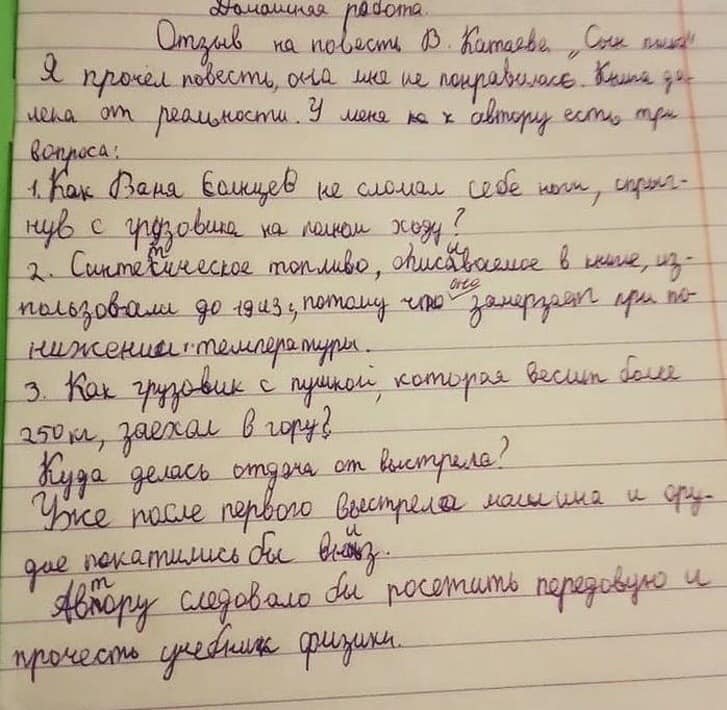 Домашняя работа.
Отзыв на повесть В. Катаева „Сын полка"
Я прочёл повесть, она мне не понравилась. Книга да-
лека от реальности. У меня к автору есть три
вопроса:
1. Как Ваня Солнцев не сломал себе ноги, спрыг-
нув с грузовика на полном ходу?
2. Синтетическое топливо, описываемое в книге, ис-
пользовали до 1943 г, потому что оно замерзает при по-
нижении температуры.
3. Как грузовик с пушкой, которая весит более
250 кг, заехал в гору?
Куда делась отдача от выстрела?
Уже после первого выстрела машина и ору-
дие покатились бы вниз.
Автору следовало бы посетить передовую и
прочесть учебник физики.